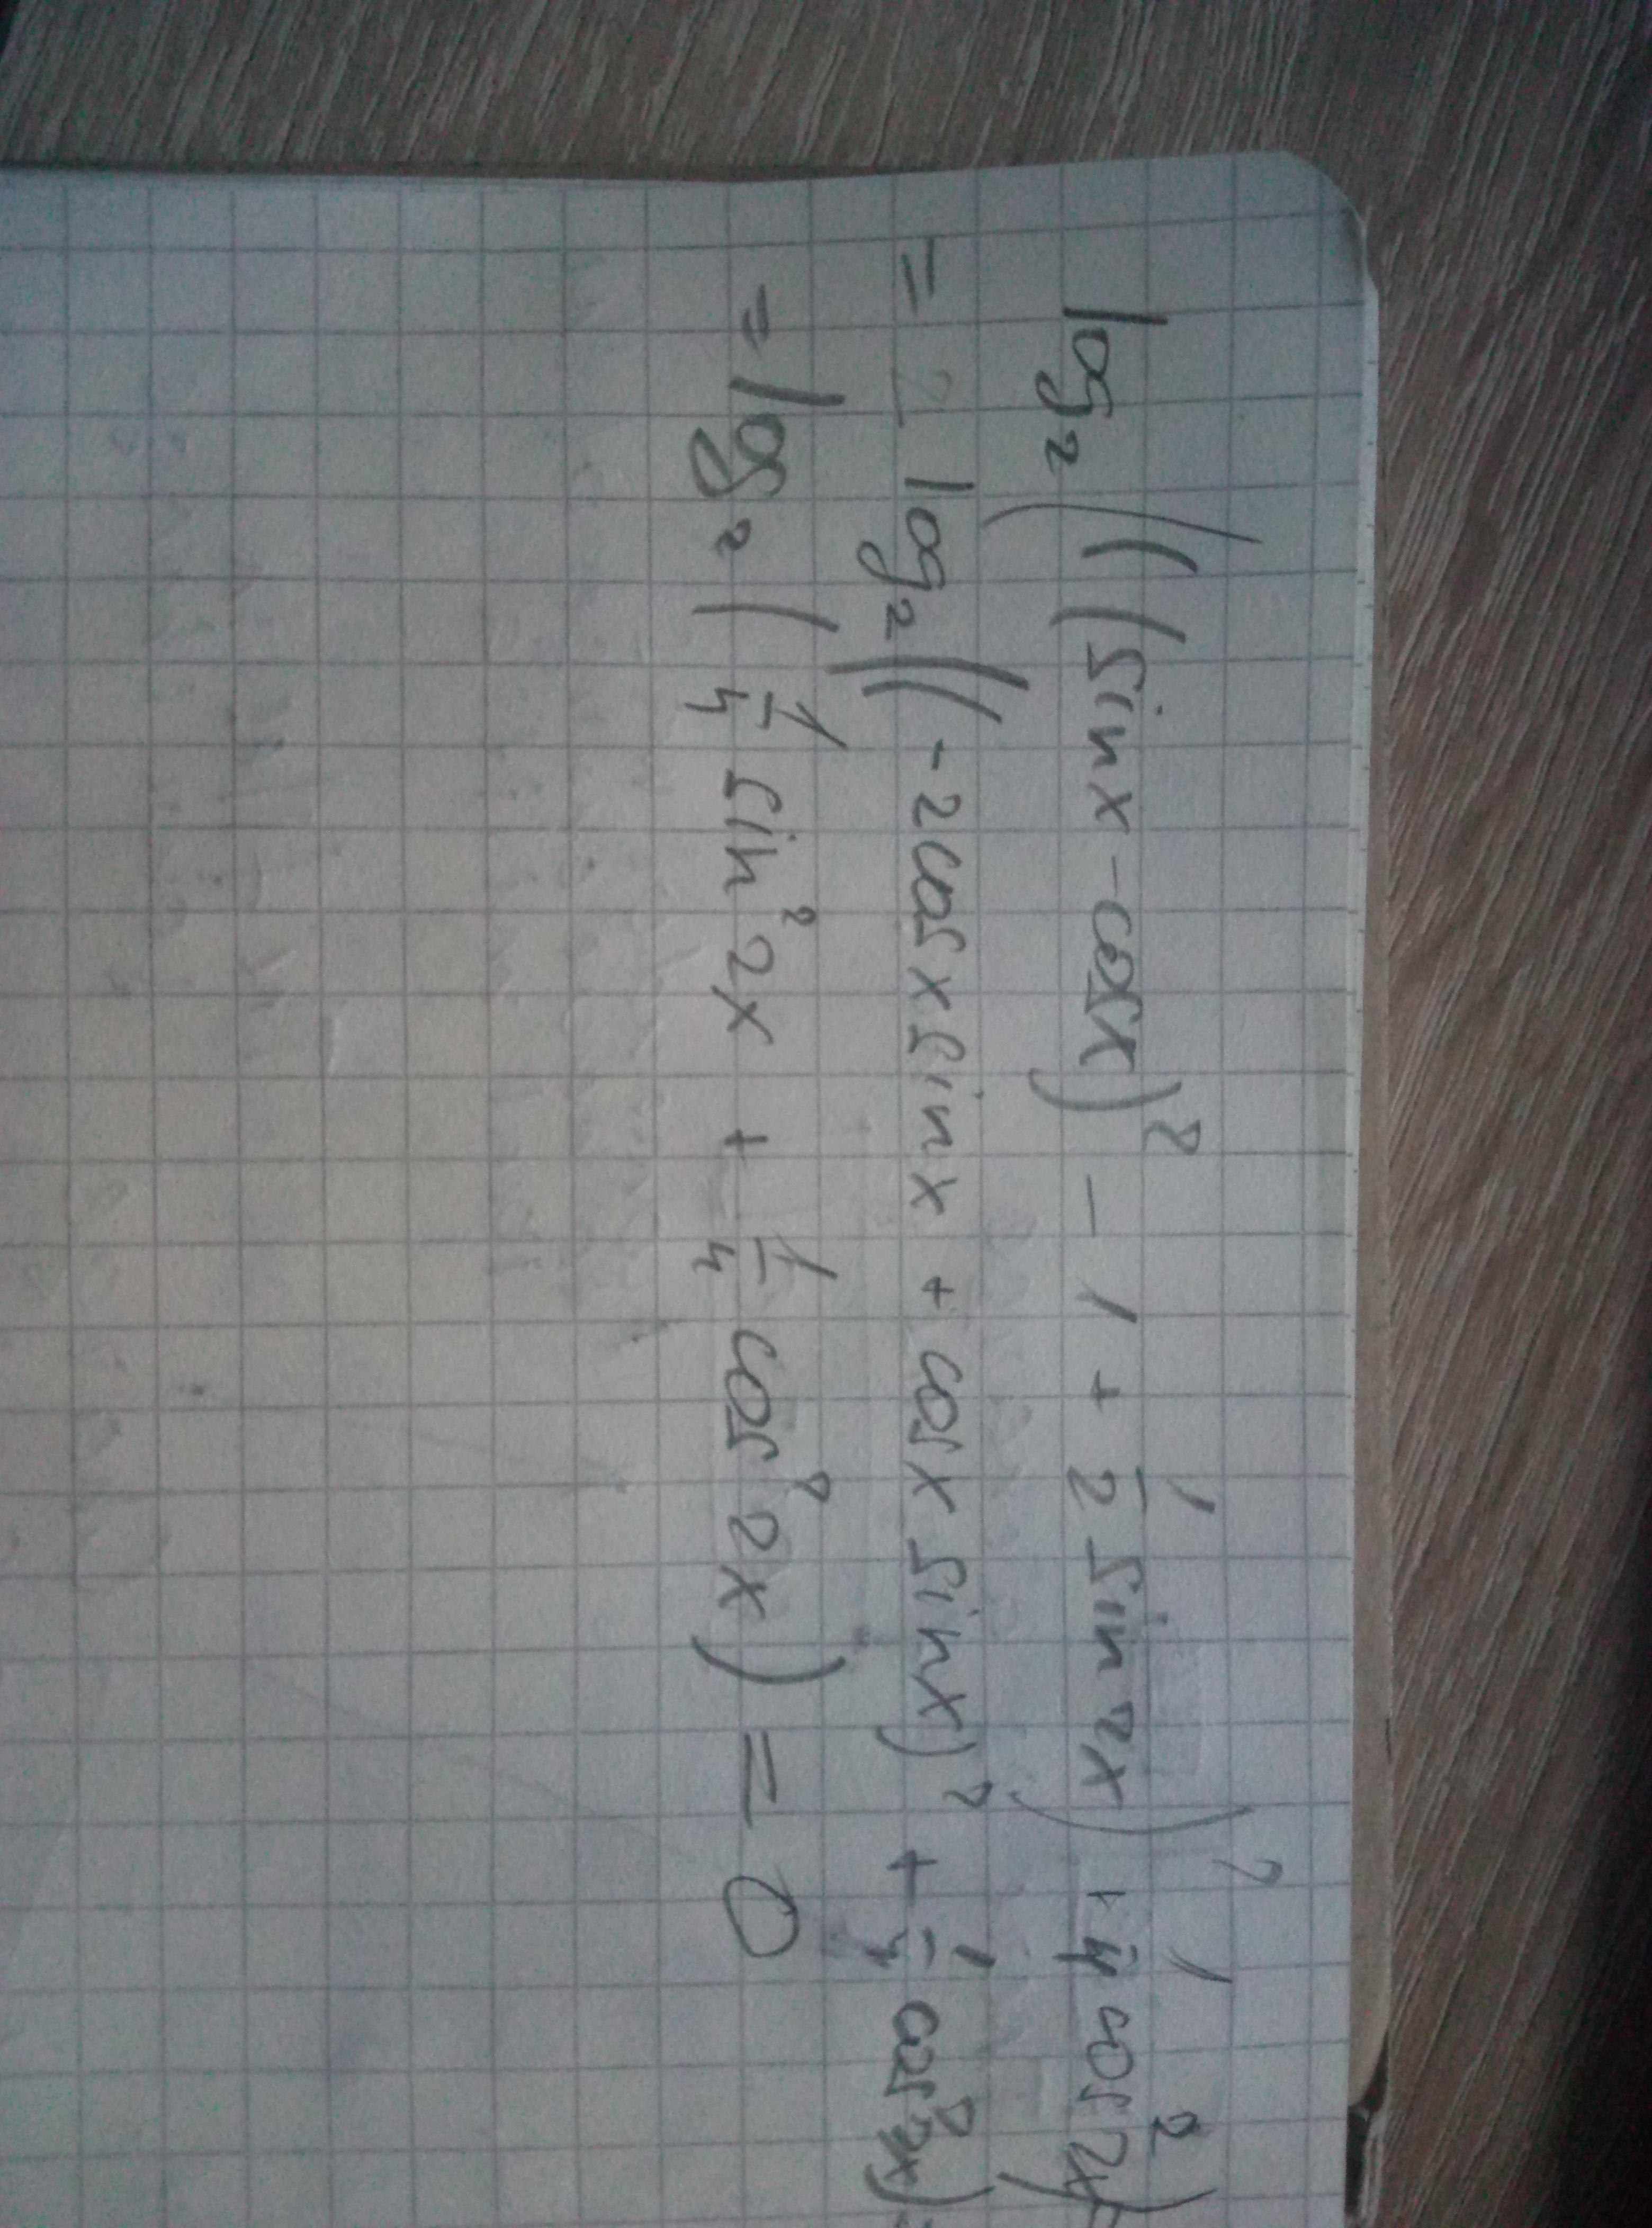 log₂(((sinx-cosx)² - 1 + 1/2 sin2x)² + 1/4 cos²2x) =
= 2 log₂((-2cosxsinx + cosx sinx)² + 1/4 cos²2x) =
= log₂(1/4 sin²2x + 1/4 cos²2x) = 0